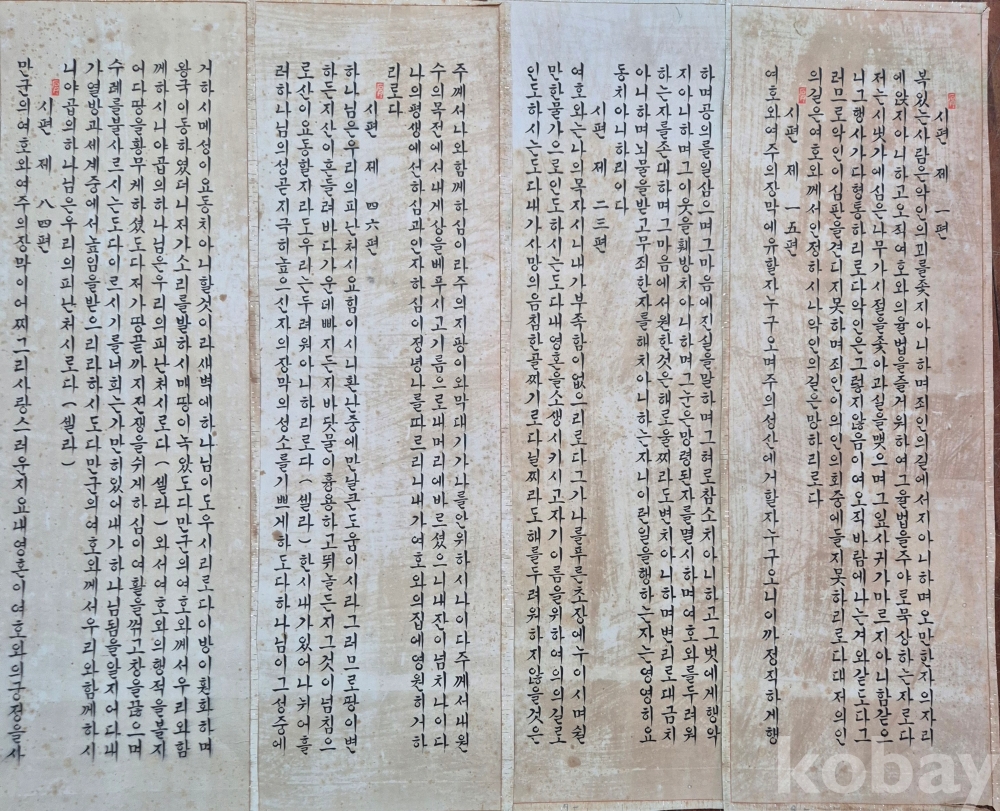 시편 제 一편
복있는사람은악인의꾀를좇지아니하며죄인의길에서지아니하며오만한자의자리
에앉지아니하고오직여호와의율법을즐거워하여그율법을주야로묵상하는자로다
저는시냇가에심은나무가시절을좇아과실을맺으며그잎사귀가마르지아니함같으
니그행사가다형통하리로다악인은그렇지않음이여오직바람에나는겨와같도다그
러므로악인이심판을견디지못하며죄인이의인의회중에들지못하리로다대저의인
의길은여호와께서인정하시나악인의길은망하리로다
시편 제 一五편
여호와여주의장막에유할자누구오며주의성산에거할자누구오니이까정직하게행
하며공의를일삼으며그마음에진실을말하며그혀로참소치아니하고그벗에게행악
지아니하며그이웃을훼방치아니하며그눈은망령된자를멸시하며여호와를두려워
하는자를존대하며그마음에서원한것은해로울찌라도변치아니하며변리로대금치
아니하며뇌물을받고무죄한자를해치아니하는자니이런일을행하는자는영영히요
동치아니하리이다
시편 제 二三편
여호와는나의목자시니내가부족함이없으리로다그가나를푸른초장에누이시며쉴
만한물가으로인도하시는도다내영혼을소생시키시고자기이름을위하여의의길로
인도하시는도다내가사망의음침한골짜기로다닐찌라도해를두려워하지않을것은
주께서나와함께하심이라주의지팡이와막대기가나를안위하시나이다주께서내원
수의목전에서내게상을베푸시고기름으로내머리에바르셨으니내잔이넘치나이다
나의평생에선하심과인자하심이정녕나를따르리니내가여호와의집에영원히거하
리로다
시편 제 四六편
하나님은우리의피난처시요힘이시니환난중에만날큰도움이시라그러므로땅이변
하든지산이흔들려바다가운데빠지든지바닷물이흉용하고뛰놀든지그것이넘침으
로산이요동할지라도우리는두려워아니하리로다(셀라)한시내가있어나뉘어흘
러하나님의성곧지극히높으신자의장막의성소를기쁘게하도다하나님이그성중에
거하시매성이요동치아니할것이라새벽에하나님이도우시리로다이방이훤화하며
왕국이동하였더니저가소리를발하시매땅이녹았도다만군의여호와께서우리와함
께하시니야곱의하나님은우리의피난처시로다(셀라)와서여호와의행적을볼지
어다땅을황무케하셨도다저가땅끝까지전쟁을쉬게하심이여활을꺾고창을끊으며
수레를불사르시는도다이르시기를너희는가만히있어내가하나님됨을알지어다내
가열방과세계중에서높임을받으리라하시도다만군의여호와께서우리와함께하시
니야곱의하나님은우리의피난처시로다(셀라)
시편 제 八四편
만군의여호와여주의장막이어찌그리사랑스러우지요내영혼이여호와의궁정을사
kobay